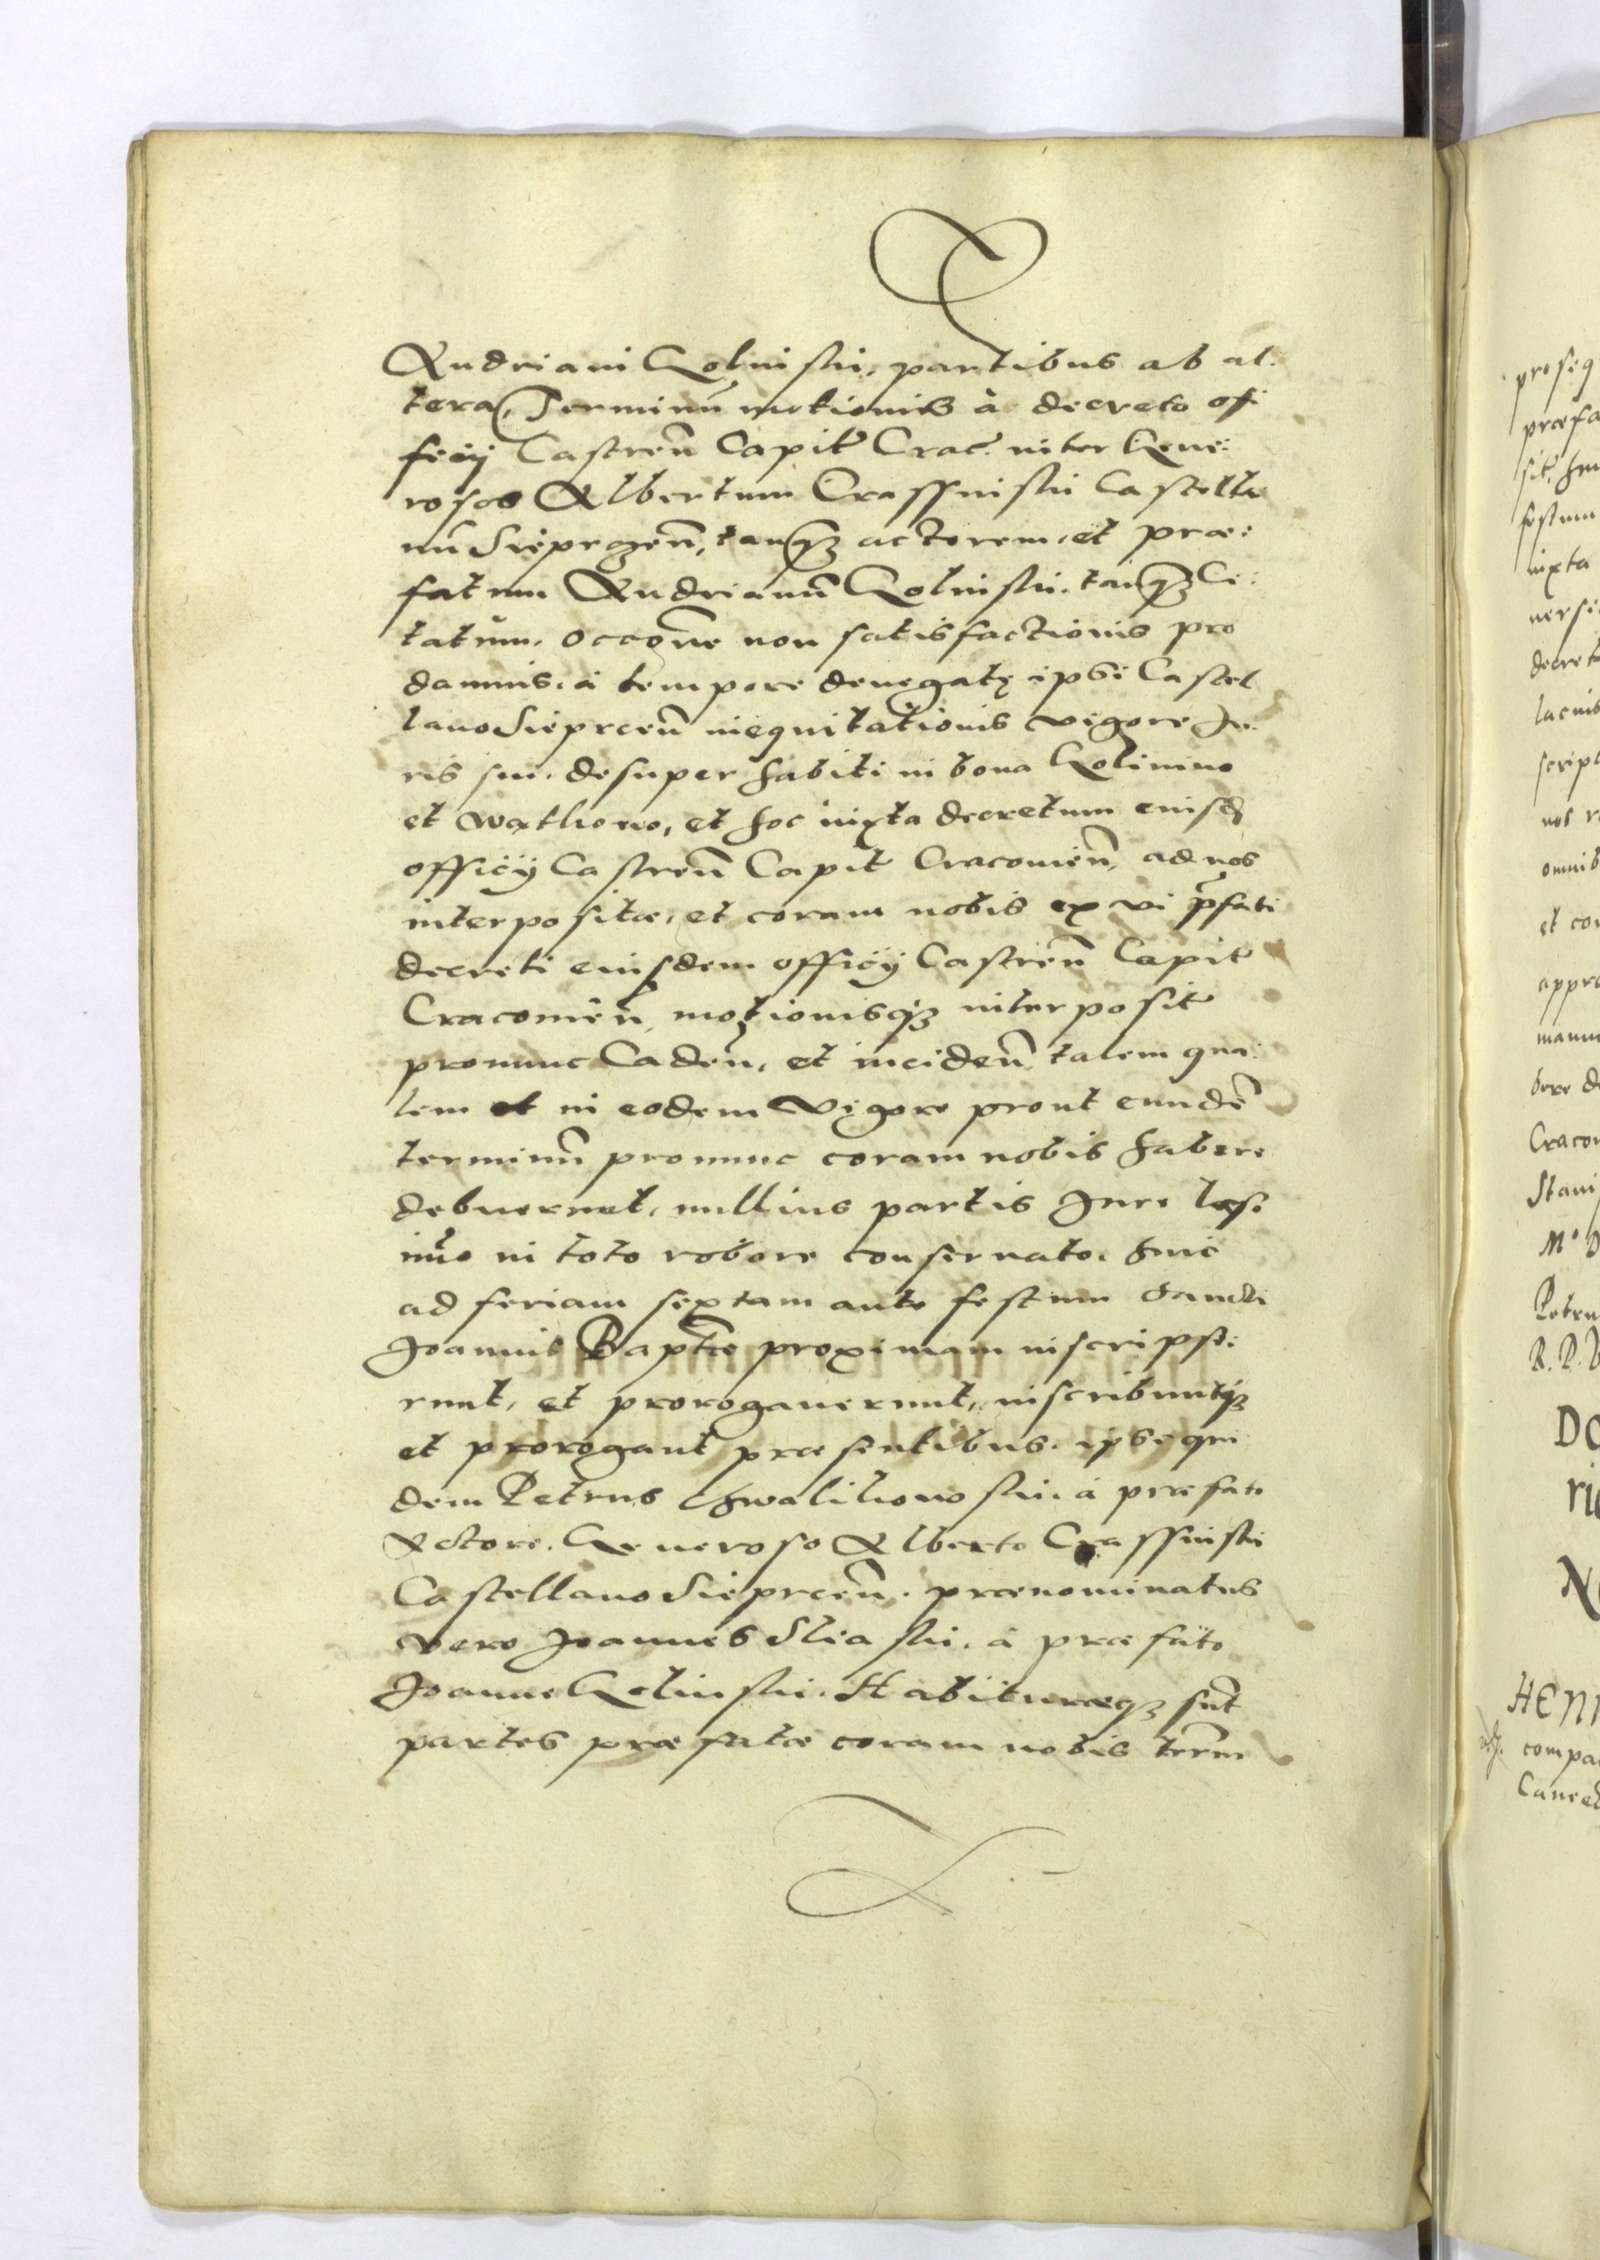 Andriani Golinski, partibus ab al:
tera, Terminũ motionis à decreto of:
ficij Castreñ Capit̃ Crac̃. inter Gene:
rosos Albertum Crassinski Castella
nũ Sieprczeñ, tanq̃ʒ actorem, et præ:
fatum Andrianũ Golinski, tanq̃ʒ Ci:
tatum. occõne non satisfactionis pro
damnis, à tempore denegatę ipsi Castel
lano Sieprceñ inequitationis vigore Iu:
ris sui, desuper habiti in bona Golinino
et
et hoc iuxta decretum eiusđ
officij Castreñ Capit̃ Cracouieñ, ad nos
interpositæ, et coram nobis ex vi p̃fati
decreti eiusdem officij Castreñ Capit̃
Cracouieñ, motionisqʒ interposit̃
pronunc Cadeñ, et incideñ, talem qua:
lem et in eodem vigore prout eundẽ
terminũ pronunc coram nobis habere
debuerunt, nullius partis Iure læso
im̃o in toto robore conseruato, hinc
ad feriam sextam ante festum Sancti
Joannis Bapt̃æ proximam inscripse:
runt, et prorogauerunt, inscribuntqʒ
et prorogant præsentibus. ipse qui
dem Petrus Chwalikowski, à præfato
Actore. Generoso Alberto Crassinski
Castellano Sieprceñ. prænominatus
vero Joannes Sliaski, à præfato
Joanne Golinski. Habituræqʒ sũt
partes præfatæ coram nobis term̃

præfa
festum
iuxta
decret
omnib
et
Craco
Petru
HENR
compa